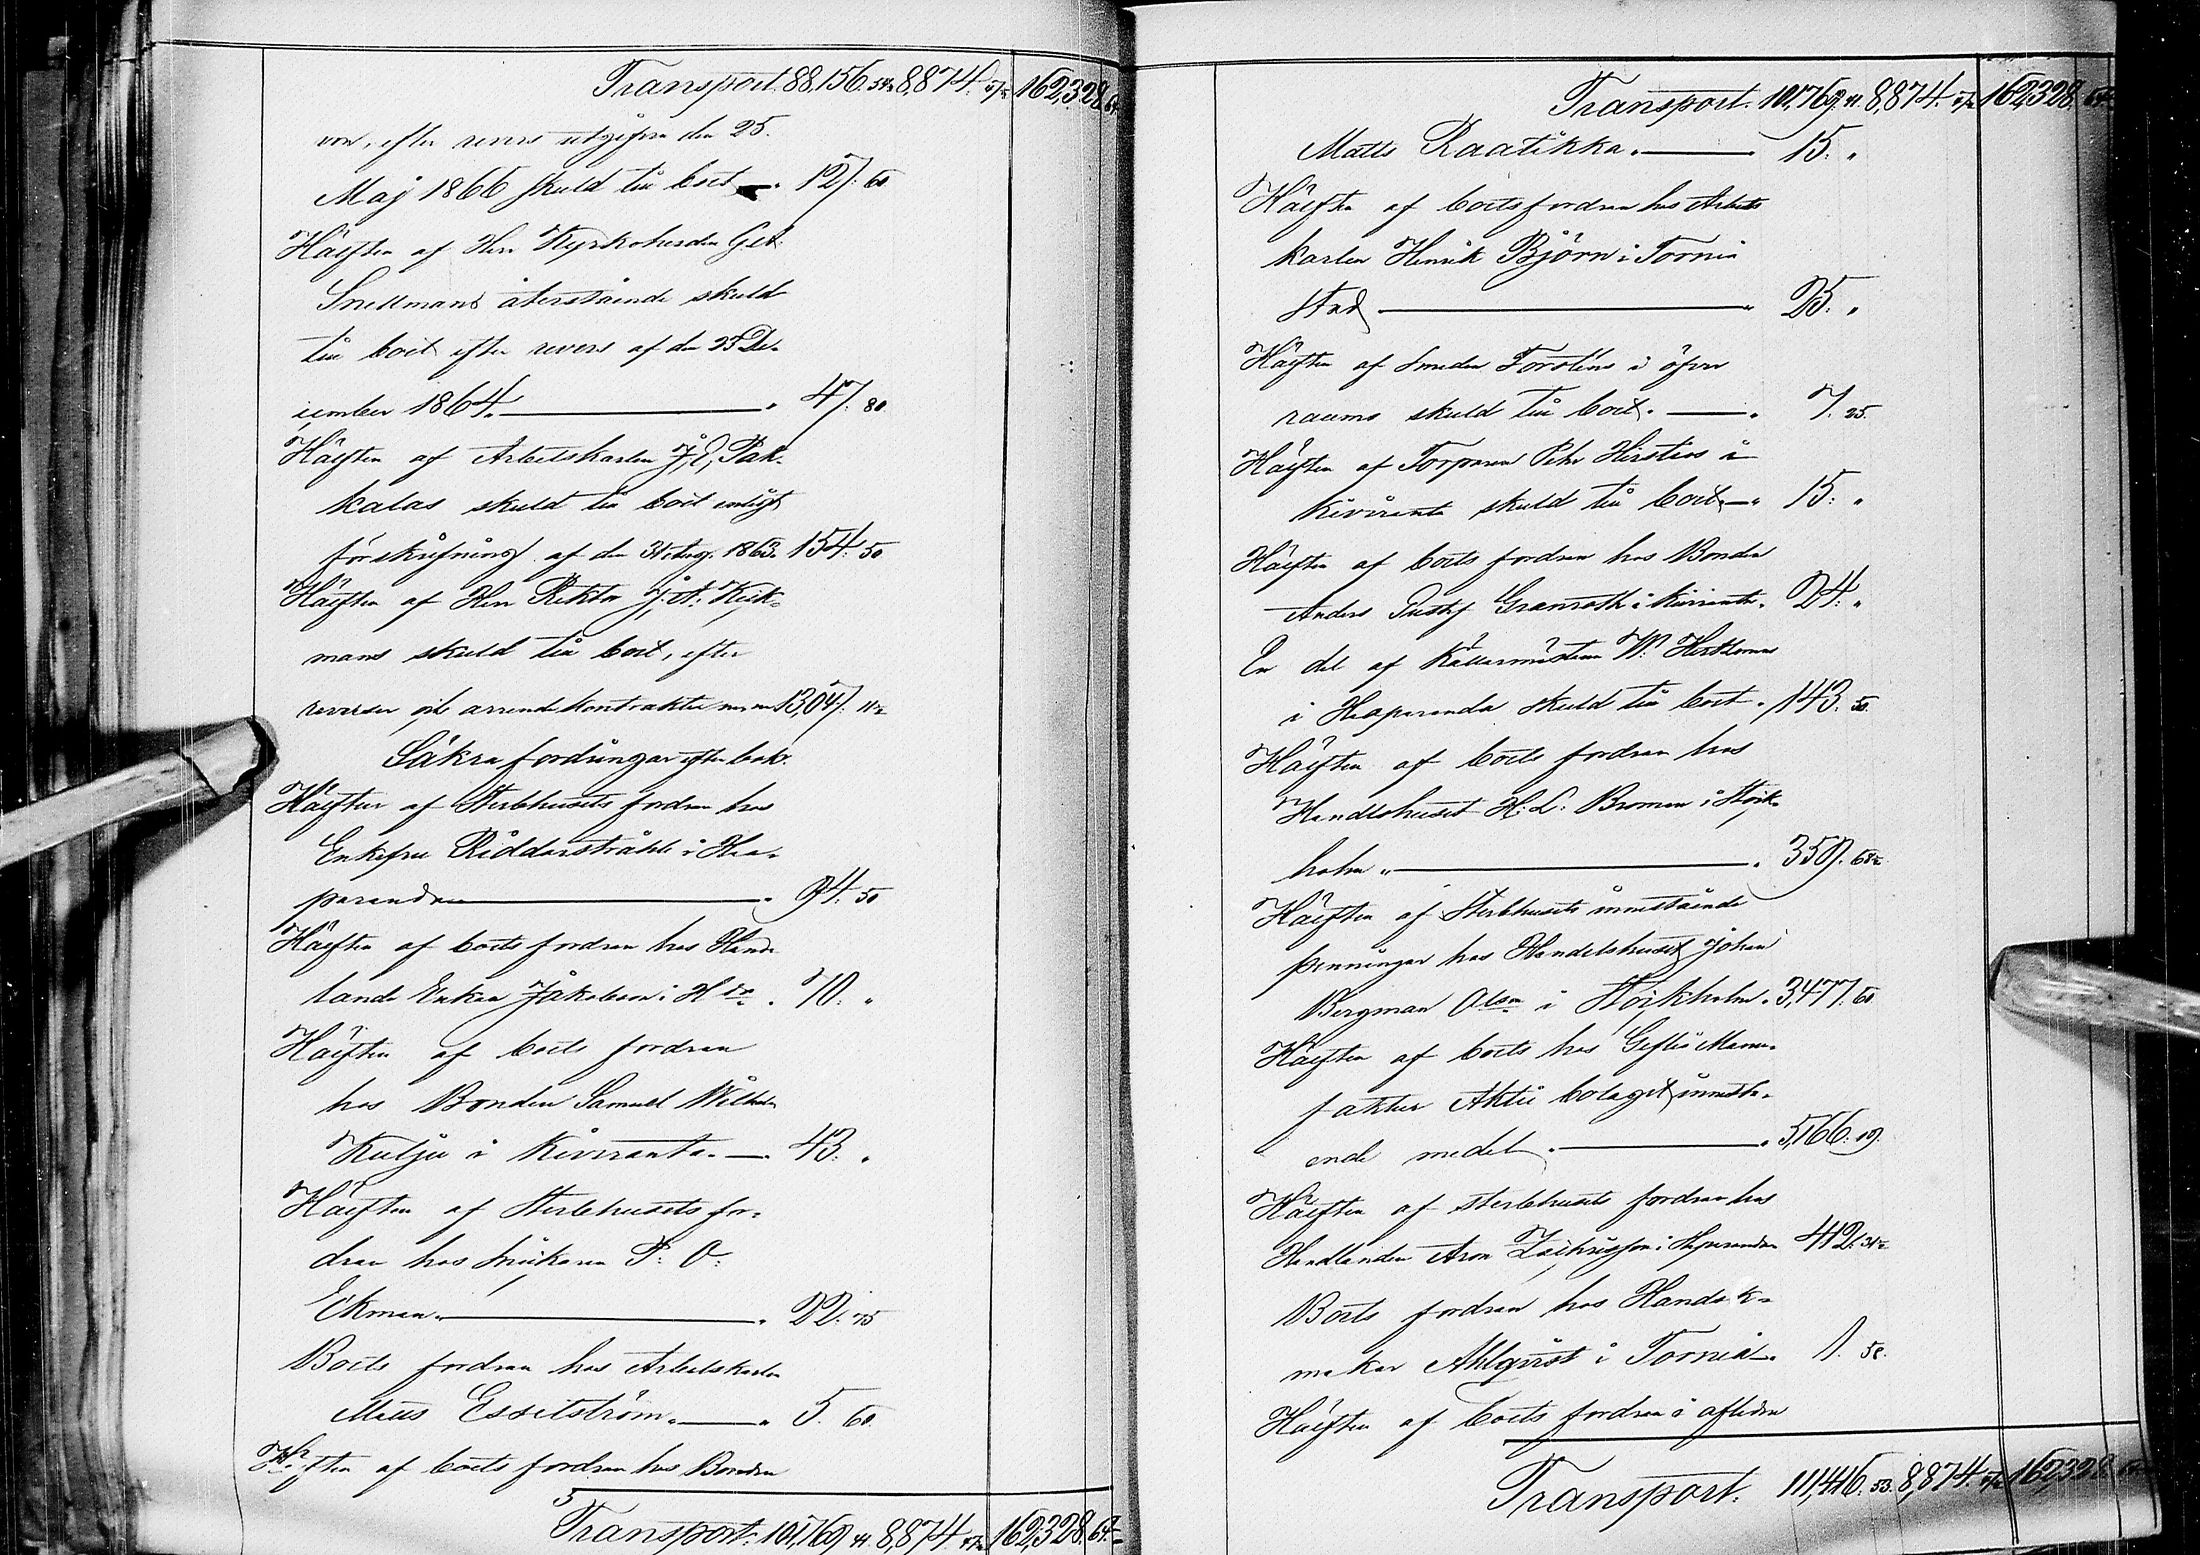 Transport. 88,156. 54. 8,874. 57½ 162,328. 64.
von, efter revers utgifven den 25.
Maj 1866 skuld till boet. 127. 60
Hälften af Herr Kyrkoherden Gel.
Snellmans återstående skuld
till boet efter revers af den 25 De-
cember 1864. 47. 80.
Hälften af Arbetskarlen J. E. Pak-
kalas skuld till boet enligt
förskrifning af den 31 Aug. 1863. 154. 50
Hälften af Herr Rektor J. A. Keck-
mans skuld till boet, efter
reverser och arrende kontrakter 13,047. 11½
Säkra fordringar efter bok.
Hälften af Sterbhusets fordran hos
Enkefru Ridderstråhle i Haa-
paranda 94. 50
Hälften af boets fordran hos Hand-
lande Enkan Jakobson i H 70. "
Hälften af boets fordran
hos Bonden Samuel Wilhelm
Kutju i Kiviranta. 43. "
Hälften af Sterbhusets for-
dran hos P. O.
Ekman. 22. 75
Boets fordran hos Arbetskarlen
Matts Esselström. 5. 60.
Hälften af boets fordran hos Bonden
Transport. 101,769 44 8,874 57½ 162,328. 64.
Transport. 101,769. 44. 8,874. 57½ 162,328. 64.
Matts Raatikka. 15. "
Hälften af boets fordran hos Arbets
karlen Henrik Björn i Torneå
stad 25. "
Hälften af Smeden Forsténs i öfver
raumo skuld till boet. 7. 25.
Hälften af Torparen Petter Hirstios i
Kiviranta skuld till boet. 15. "
Hälften af boets fordran hos Bonden
Anders Gustaf Granroth i Kiviranta. 24. "
En del af Källarmästaren W.
i Haparanda skuld till boet. 143. 50.
Hälften af boets fordran hos
Handlshuset H. L. Broman i Stock-
holm " 359. 68½
Hälften af Sterbhusets innestående
penningar hos Handelshuset Johan
Bergman Olsn i Stockholm. 3,477. 60
Hälften af boets hos Gefle Manu-
faktur Aktie bolaget innestå-
ende medel. 5,166. 19.
Hälften af Sterbhusets fordran hos
Handlanden Aron Zachrisson i Haparanda 412. 31½
Boets fordran hos Handsk-
makar Ahlqvist i Torneå. 1. 50.
Hälften af boets fordran i aflidne
Transport. 111,416. 53. 8,874. 57½ 162,328. 64.